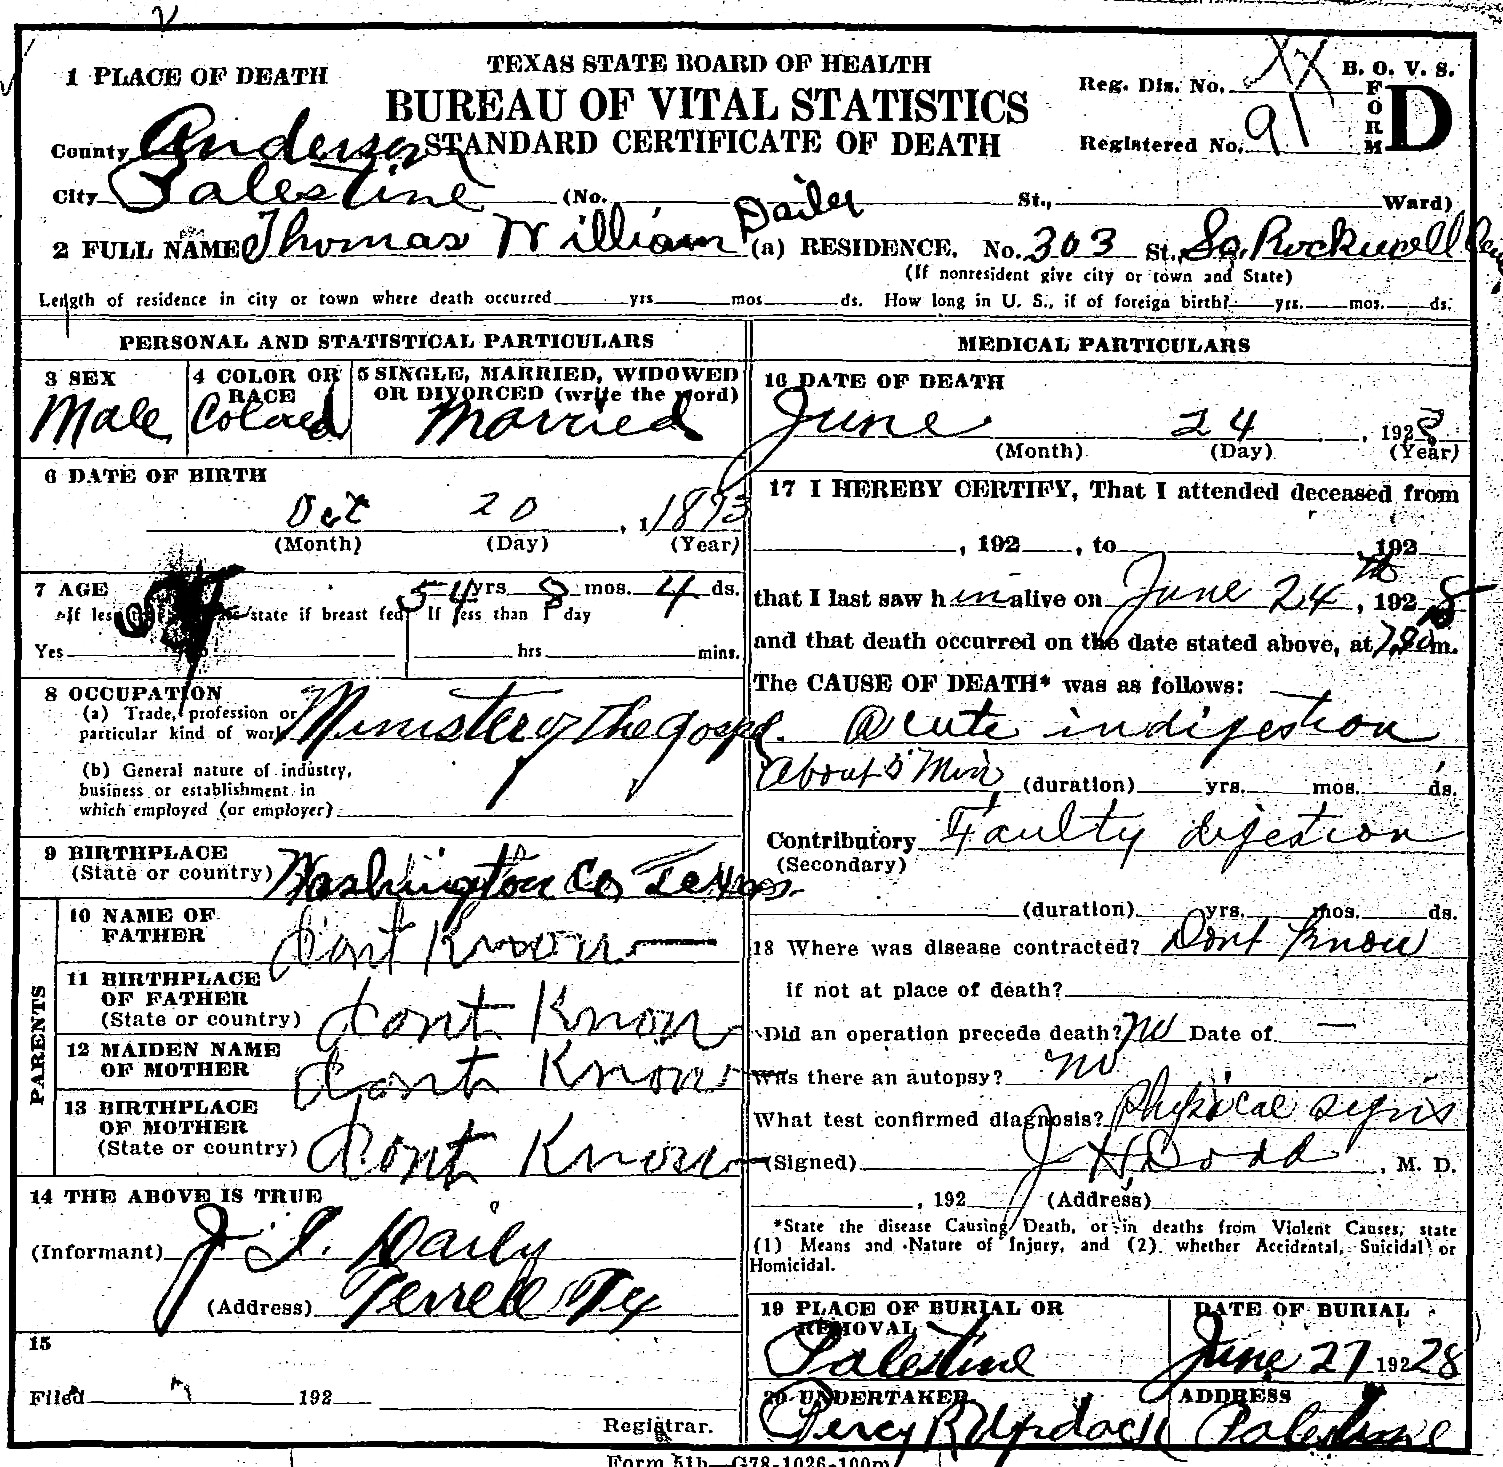 TEXAS STATE BOARD OF HEALTH
BUREAU OF VITAL STATISTICS
STANDARD CERTIFICATE OF DEATH
Reg. Dis. No. XX
Registered No. 91
B. O. V. S.
FORM D
1 PLACE OF DEATH
County Anderson
City Palestine (No. St., Ward)
2 FULL NAME Thomas William Daily (a) RESIDENCE. No. 303 St. So. Rockwell
(If nonresident give city or town and State)
Length of residence in city or town where death occurred yrs mos ds. How long in U. S., if of foreign birth? yrs. mos. ds.
PERSONAL AND STATISTICAL PARTICULARS
3 SEX
Male
4 COLOR OR RACE
Colored
5 SINGLE, MARRIED, WIDOWED
OR DIVORCED (write the word)
Married
6 DATE OF BIRTH
Oct 20, 1893
(Month) (Day) (Year)
7 AGE 54 yrs 8 mos. 4 ds.
If les state if breast fed If less than 1 day
Yes hrs mins.
8 OCCUPATION
(a) Trade, profession or
particular kind of work Minister of the gospel.
(b) General nature of industry,
business or establishment in
which employed (or employer)
9 BIRTHPLACE
(State or country) Washington Co, Texas.
PARENTS
10 NAME OF
FATHER dont Know
11 BIRTHPLACE
OF FATHER
(State or country) dont Know
12 MAIDEN NAME
OF MOTHER dont Know
13 BIRTHPLACE
OF MOTHER
(State or country) dont Know
14 THE ABOVE IS TRUE
(Informant) J. I. Daily
(Address) Terrell Tx
15
Filed 192
Registrar.
MEDICAL PARTICULARS
16 DATE OF DEATH
June 24, 1928
(Month) (Day) (Year)
17 I HEREBY CERTIFY, That I attended deceased from
, 192 , to , 192
that I last saw h im alive on June 24th, 1928
and that death occurred on the date stated above, at m.
The CAUSE OF DEATH* was as follows:
Acute indigestion
About 5 Min (duration) yrs. mos. ds.
Contributory Faulty digestion
(Secondary)
(duration) yrs. mos. ds.
18 Where was disease contracted? Dont Know
if not at place of death?
Did an operation precede death? no Date of —
Was there an autopsy? no
What test confirmed diagnosis? Physical signs
(Signed) J H Dodd, M. D.
, 192 (Address)
*State the disease Causing Death, or in deaths from Violent Causes, state
(1) Means and Nature of Injury, and (2) whether Accidental, Suicidal or
Homicidal.
19 PLACE OF BURIAL OR
REMOVAL
Palestine
DATE OF BURIAL
June 27 192 28
20 UNDERTAKER
Percy R Murdock
ADDRESS
Palestine
Form 51b—G78-1026-100m